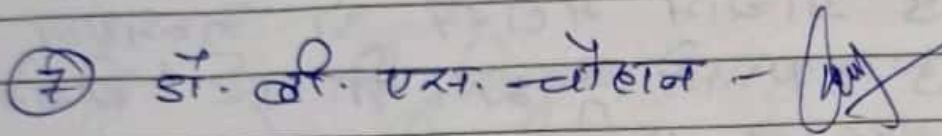 ⑦ डॉ. बी. एस. चौहान -